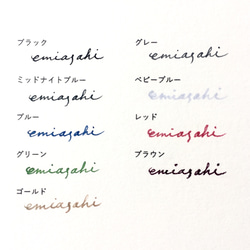 ブラック
emiasahi
グレー
emiasahi
ミッドナイトブルー
emiasahi
ベビーブルー
emiasahi
ブルー
emiasahi
レッド
emiasahi
グリーン
emiasahi
ブラウン
emiasahi
ゴールド
emiasahi